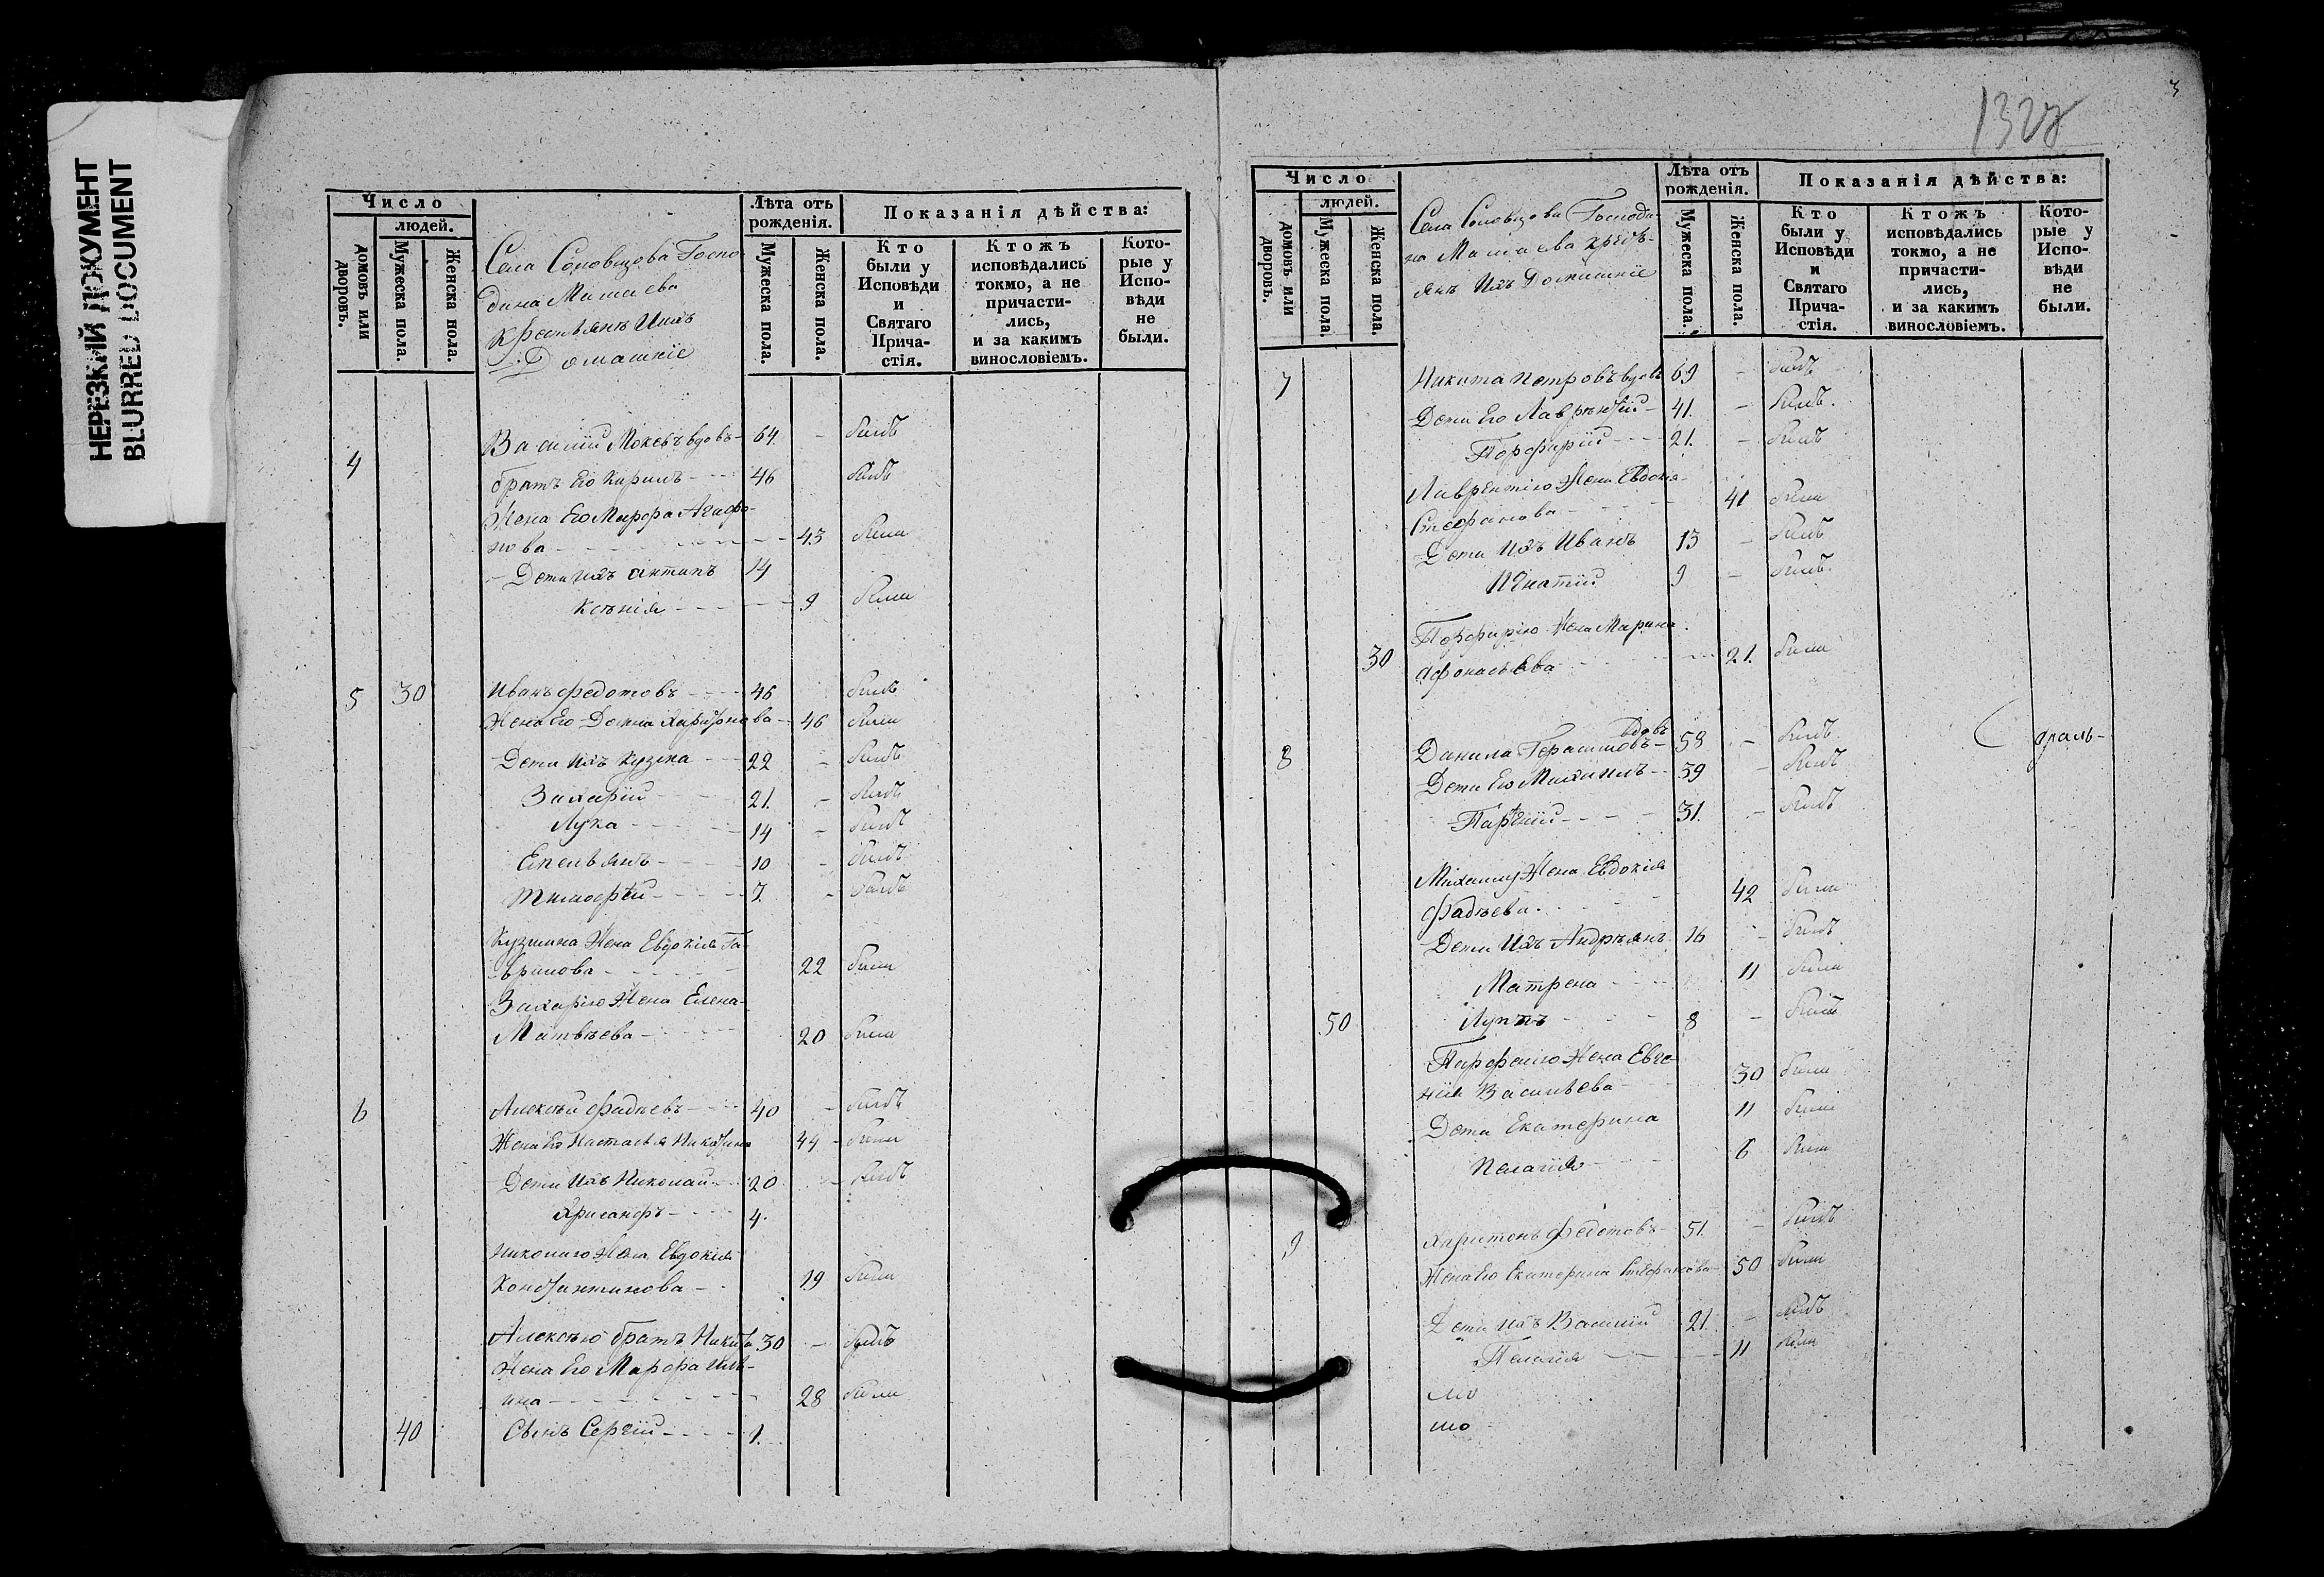 НЕРЕЗКИЙ ДОКУМЕНТ
BLURRED DOCUMENT
Число
людей.
домовъ или дворовъ.
Мужеска пола.
Женска пола.
Села Соловцова Госпо-
дина Матаева
крестьянъ Ихъ
Домашніе
Лѣта отъ рожденія.
Мужеска пола.
Женска пола.
Показанія дѣйства:
Кто были у Исповѣди и Святаго Прича-стія.
Ктожъ исповѣдались токмо, а не причасти-лись, и за какимъ винословіемъ.
Кото-рые у Испо-вѣди не были.
4 Василій Мокевъ вдовъ - 64 - былъ
братъ Его Кирилъ - 46 былъ
Жена Его Марфа Агафо-
нова - 43 была
Дети ихъ Антипъ 14
Ксѣнія - 9 была
5 30 Иванъ Федотовъ - 46 былъ
Жена Его Домна Харитонова - 46 была
Дети ихъ Кузма - 22 - былъ
Захарій - 21. - былъ
Лука - 14 - былъ
Емельянъ - 10 - былъ
Тимофѣй - 7. - былъ
Кузмина Жена Евдокія Га-
врилова - 22 была
Захарію Жена Елена
Матвѣева - 20 была
6 Алексѣй Фадѣевъ - 40 - былъ
Жена Его Настасья Никитина 44 - была
Дети ихъ Николай - 20 - былъ
Хрисанфъ - 4.
Николаю Жена Евдокія
Константинова - 19 была
Алексѣю братъ Никита 30 - былъ
Жена Его Марфа Иль-
ина - 28 была
40 Сынъ Сергій - 1.
3
132
Число
людей.
домовъ или дворовъ.
Мужеска пола.
Женска пола.
Села Соловцова Господи-
на Матаева крестъ-
янъ Ихъ Домашніе
Лѣта отъ рожденія.
Мужеска пола.
Женска пола.
Показанія дѣйства:
Кто были у Исповѣди и Святаго Прича-стія.
Ктожъ исповѣдались токмо, а не причасти-лись, и за какимъ винословіемъ.
Кото-рые у Испо-вѣди не были.
7 Никита Петровъ вдовъ 69 - былъ
Дети Его Лаврѣнтій - 41. - былъ.
Порфирій - 21. - былъ
Лаврентію Жена Евдокія
Стефанова - 41 была
Дети Ихъ Иванъ 13 - былъ
Игнатій 9 - былъ.
Порфирію Жена Марина
30 Афонасьева - 21. была
8 Данила Герасимовъ вдовъ - 58 - былъ
Дети Его Михаилъ - 39 - былъ
Парѳній - 31. - былъ
Михаилу Жена Евдокія
Фадѣева - 42 была
Дети Ихъ Андрѣянъ 16 - былъ
Матрена - 11 была
50 Лупъ - 8 - былъ
Парфенію Жена Евге-
нія Васильева - 30 была
Дети Екатерина 11 была
Пелагія - 6 была
9 Харитонъ Федотовъ 51. - былъ
Жена Его Екатерина Стефанова - 50 была
Дети Ихъ Василій 21. - былъ
Пелагія - 11 была